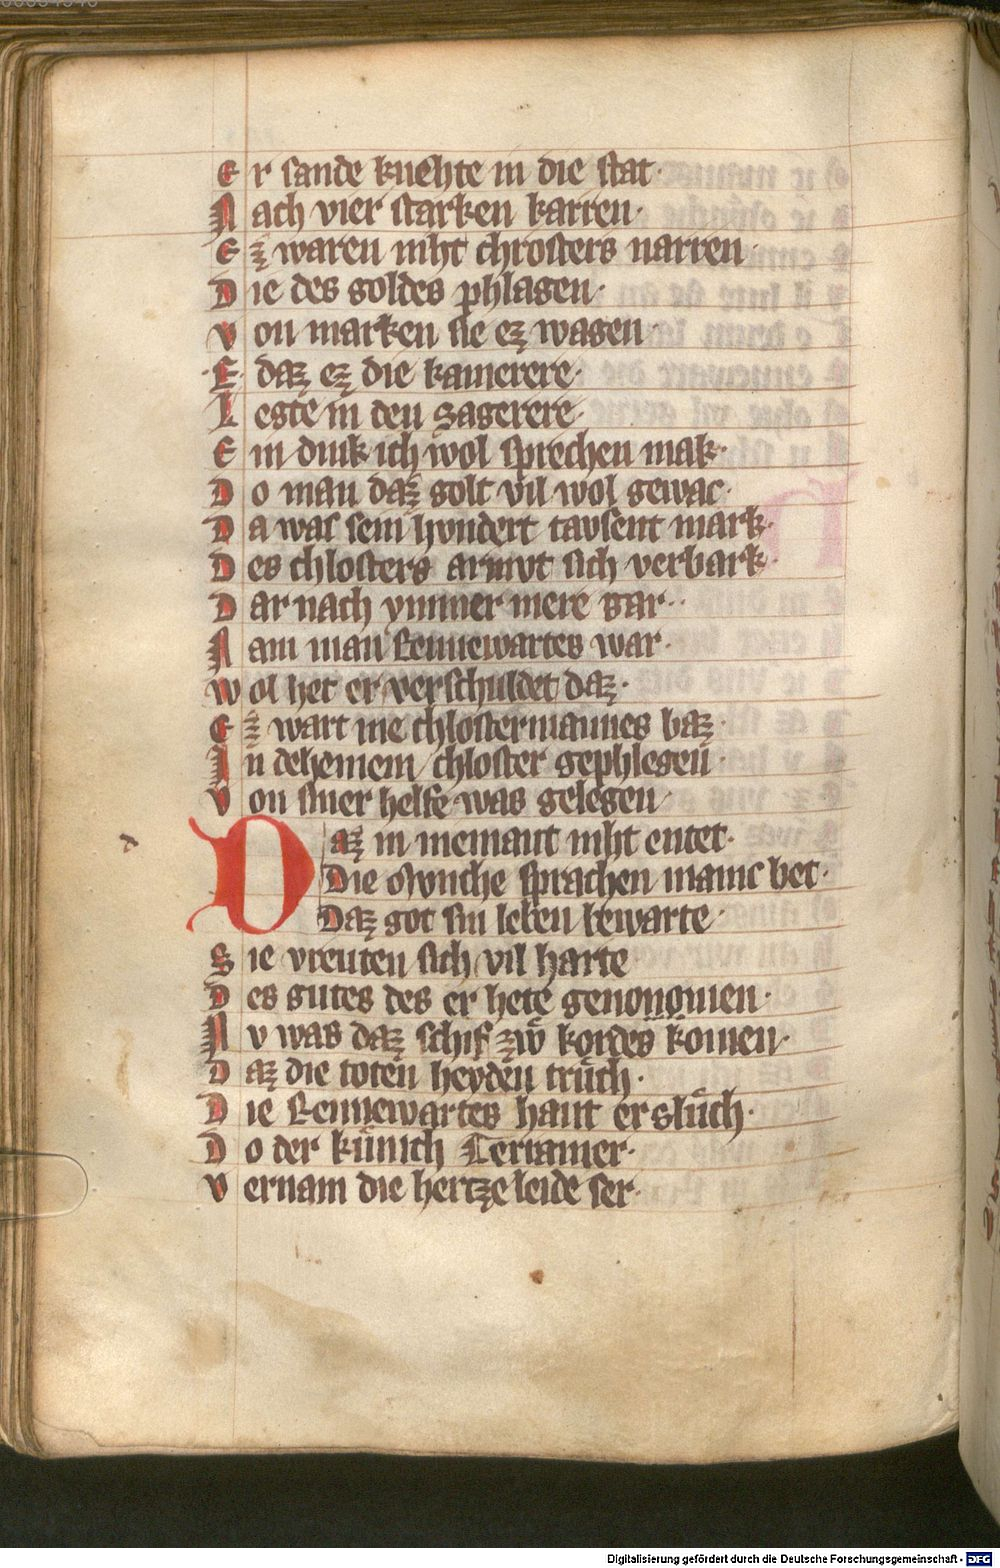 Er sande knehte in die stat·
Nach vier starken karren·
Ez waren niht chrosters narren·
Die des goldes phlagen·
Von marken sie ez wagen·
E· daz ez die kamerere·
Leste in den sagerere·
Ein dink ich wol sprechen mak·
Do man daz golt vil wol gewac·
Da was sein hvndert tavsent mark·
Des chlosters armvt sich verbark·
Dar nach ymmer mere gar·
Nam man Rennewartes war·
Wol het er verschuldet daz·
Ez wart nie chlostermannes baz·
In deheinem chloster gephlegen·
Von siner helfe was gelegen
Daz in niemant niht entet·
Die Mvnche sprachen manic bet·
Daz got sin leben bewarte·
Sie vreuten sich vil harte
Des gutes des er hete genomen·
Nv was daz schif zů kordes komen·
Daz die toten heyden trůch·
Die Rennewartes hant erslůch·
Do der kůnich Terramer·
Vernam die hertzeleide ser·
Digitalisierung gefördert durch die Deutsche Forschungsgemeinschaft - DFG